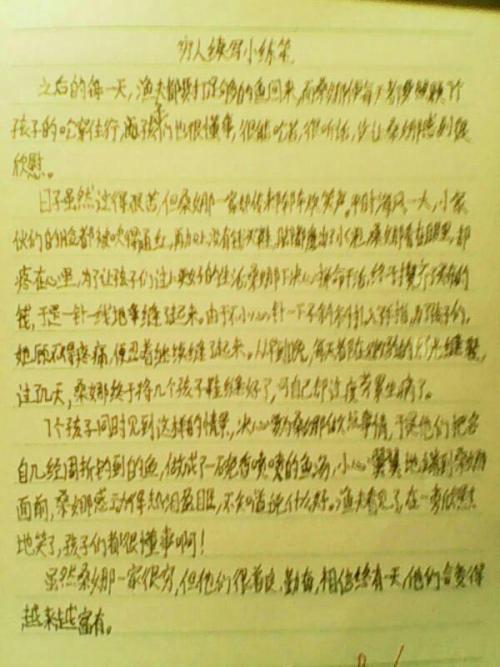 穷人续写小练笔
之后的每一天，渔夫都要打足够的鱼回来，而桑娜便每天劳累照顾7个
孩子的吃穿住行，孩子们也很懂事，很能吃苦，很听话，让桑娜感到很
欣慰。
日子虽然过得艰苦，但桑娜一家却充满欢笑声。平时海风一大，小家
伙们的脸都被吹得通红，再加上没有鞋，桑娜看在眼里，却
疼在心里，为了让孩子们过上更好的生活，桑娜下决心拼命干活，终于攒齐了买布的
钱，于是一针一线地拿缝起来。由于不小心，针一下不扎入手指，为了孩子们，
她顾不得疼痛，便忍着继续缝起来。从早到晚，每天都在灯光缝鞋，
过几天，桑娜终于将几个孩子鞋缝好了，可自己却过度劳累生病了。
7个孩子同时见到这样的情景，决心要为桑娜做些事情，于是他们把各
自几经周折钓到的鱼，做成了一碗香喷喷的鱼汤，小心翼翼地端到桑娜
面前，桑娜感动得热泪盈眶，不知道说什么好。渔夫看见了，在一旁欣慰
地笑了，孩子们都很懂事啊！
虽然桑娜一家很穷，但他们很善良，勤奋，相信终有一天他们会变得
越来越富有。